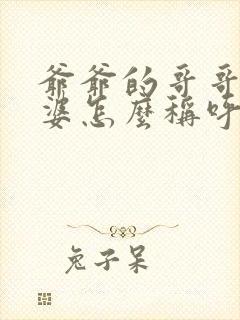 爺爺的哥哥
婆怎麼稱呼
兔子呆